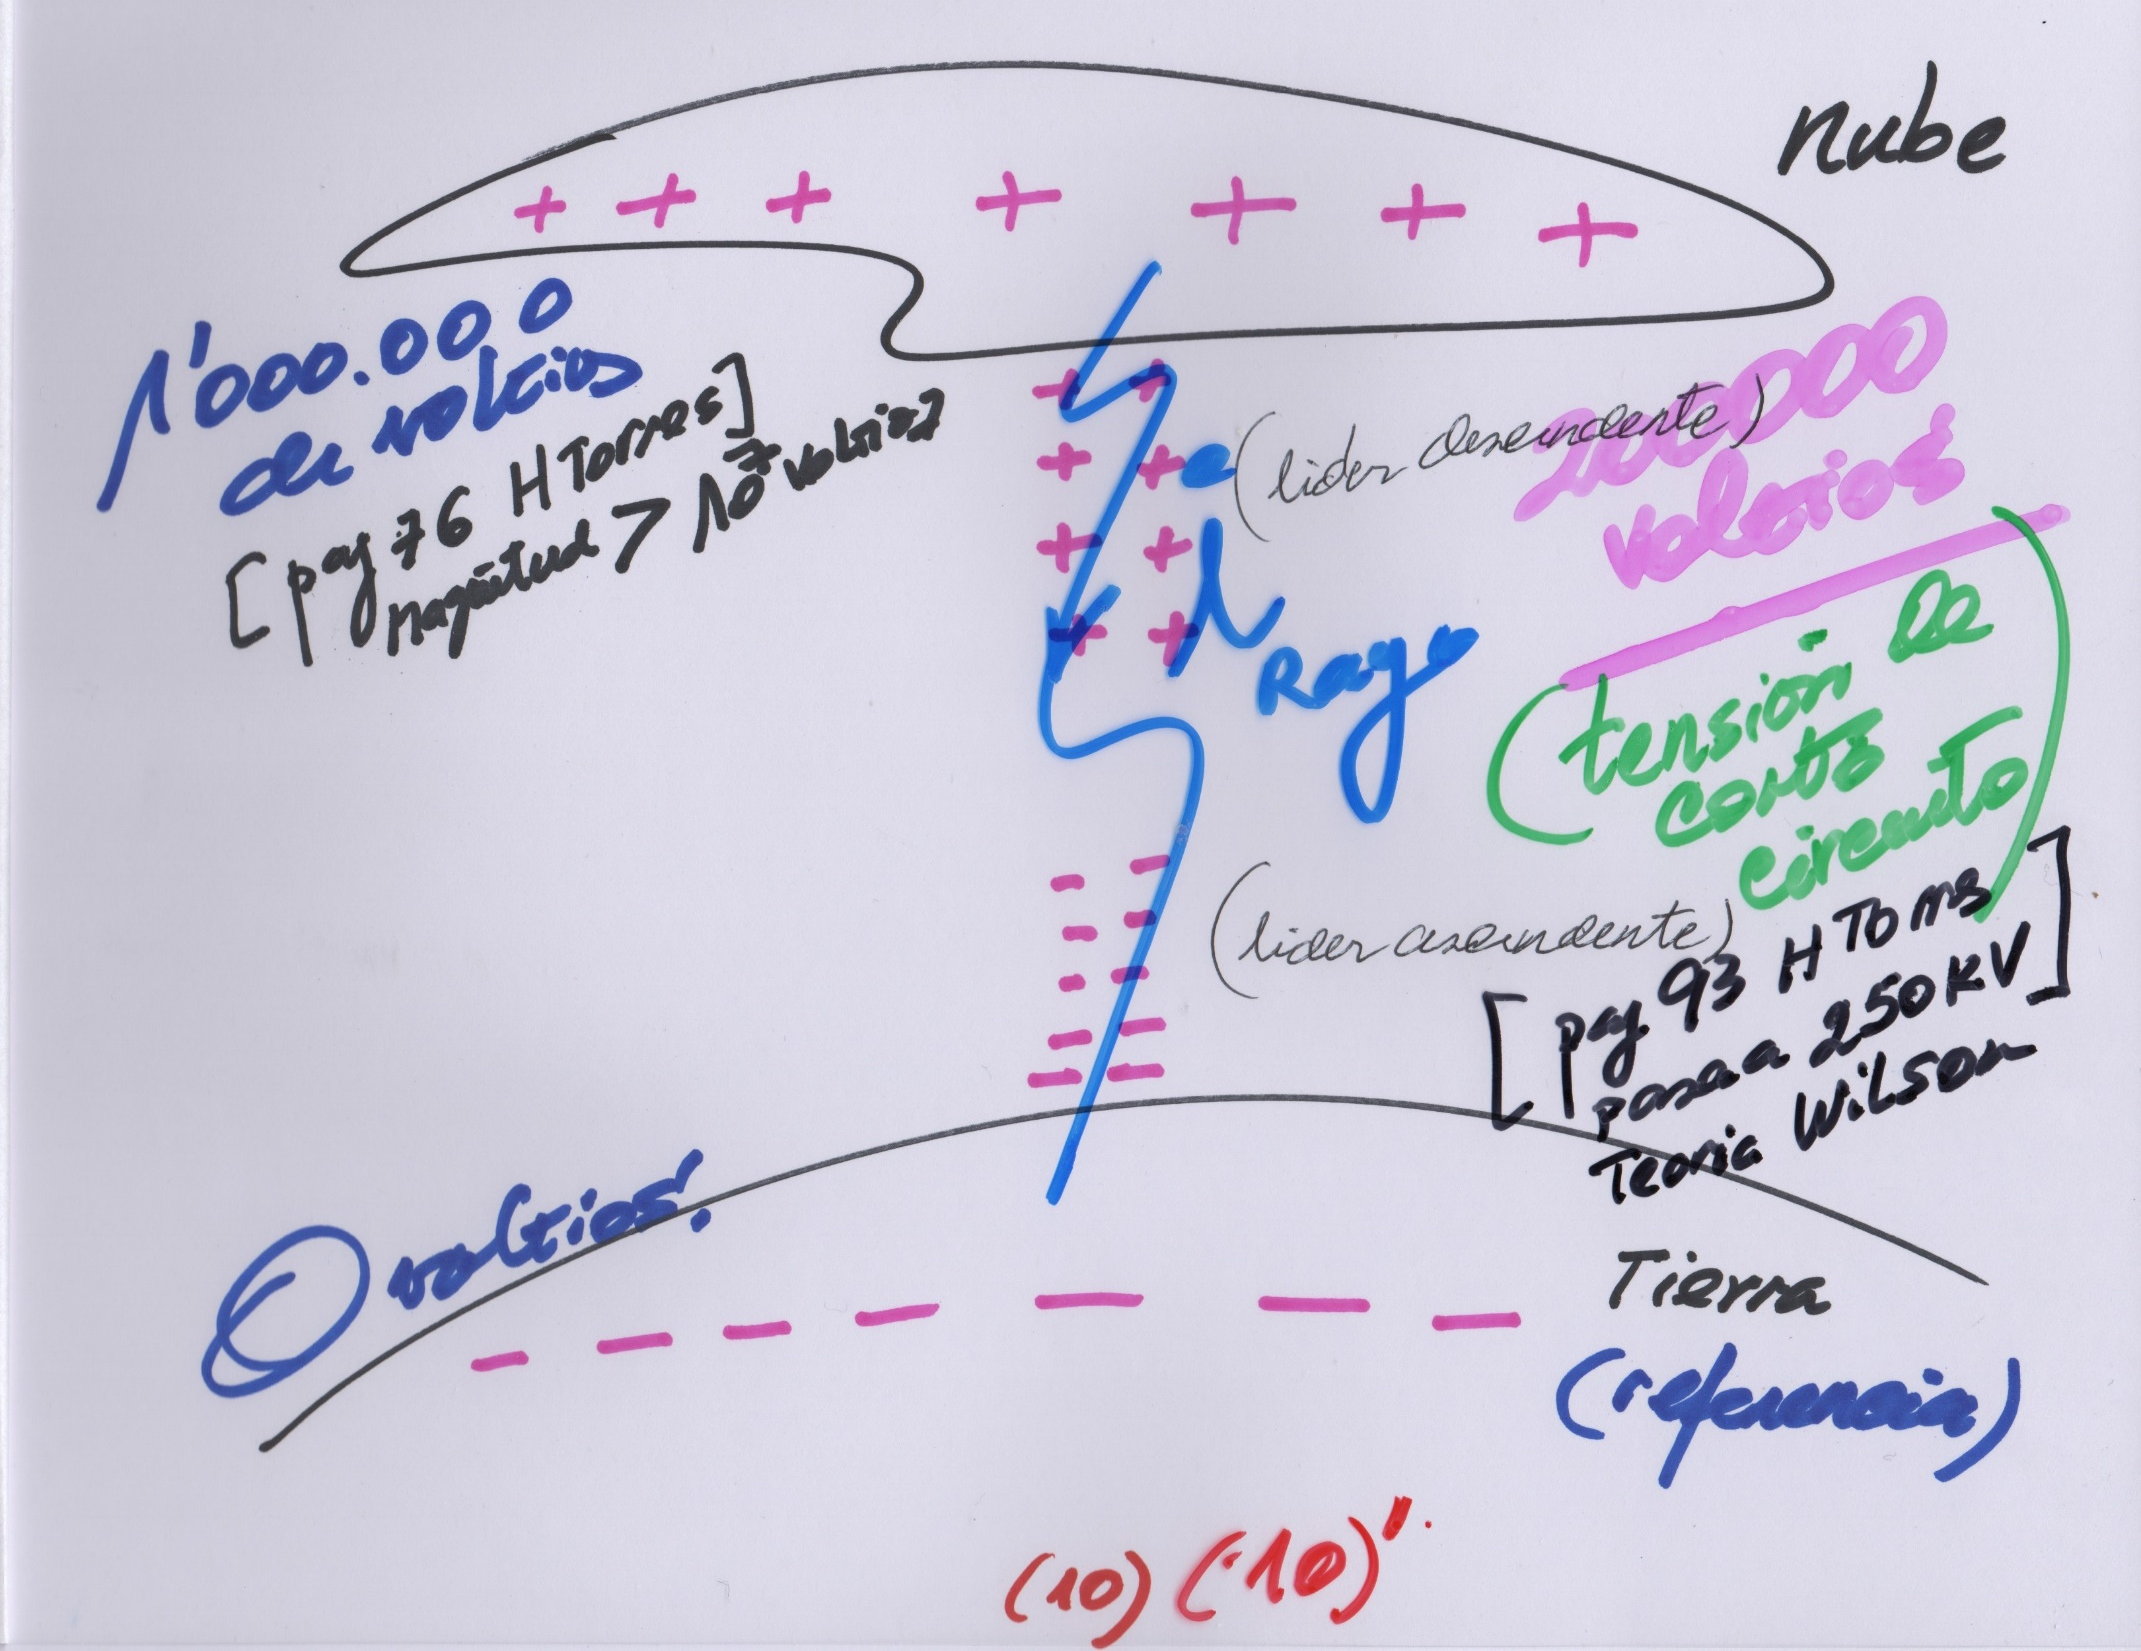 nube
1'000.000
de voltios
[pag 76 H Torres]
magnitud > 10^7 voltios
(lider descendente)
200000
voltios
Rayo
(tensión de
corto
circuito)
(lider ascendente)
[pag. 93 H Torres
pasa a 250 KV]
Teoria Wilson
0 voltios!
Tierra
(referencia)
(10) (10)